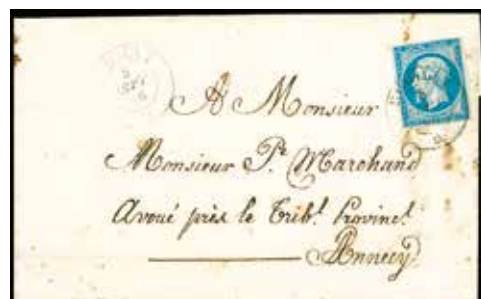 A Monsieur
Monsieur Pr. Marchand
Avoué près le Tribl. Provincl.
Annecy